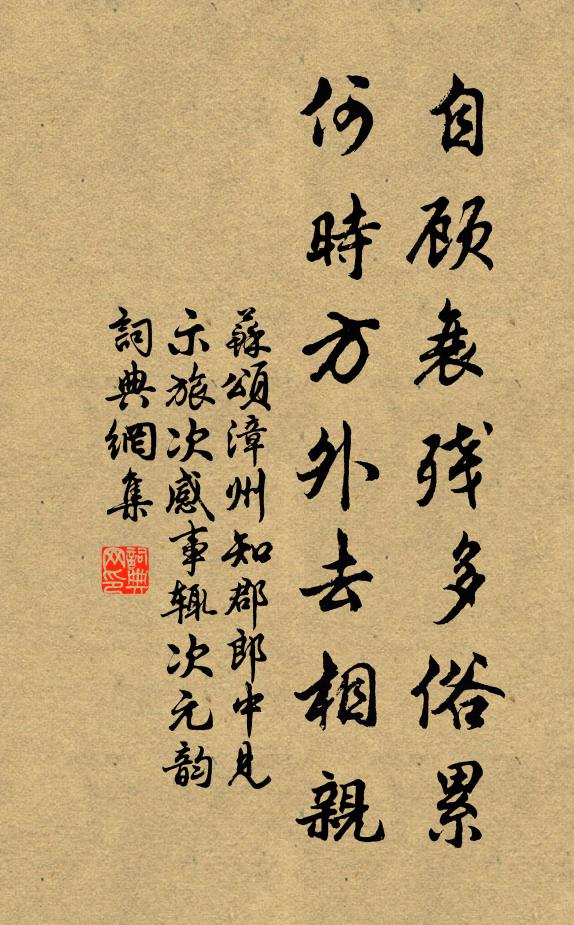 自顾衰残多俗累
何時方外去相親
蘇頌漳州知郡郎中見
示旅次感事辄次元韵
詞典網集
詞典
网印